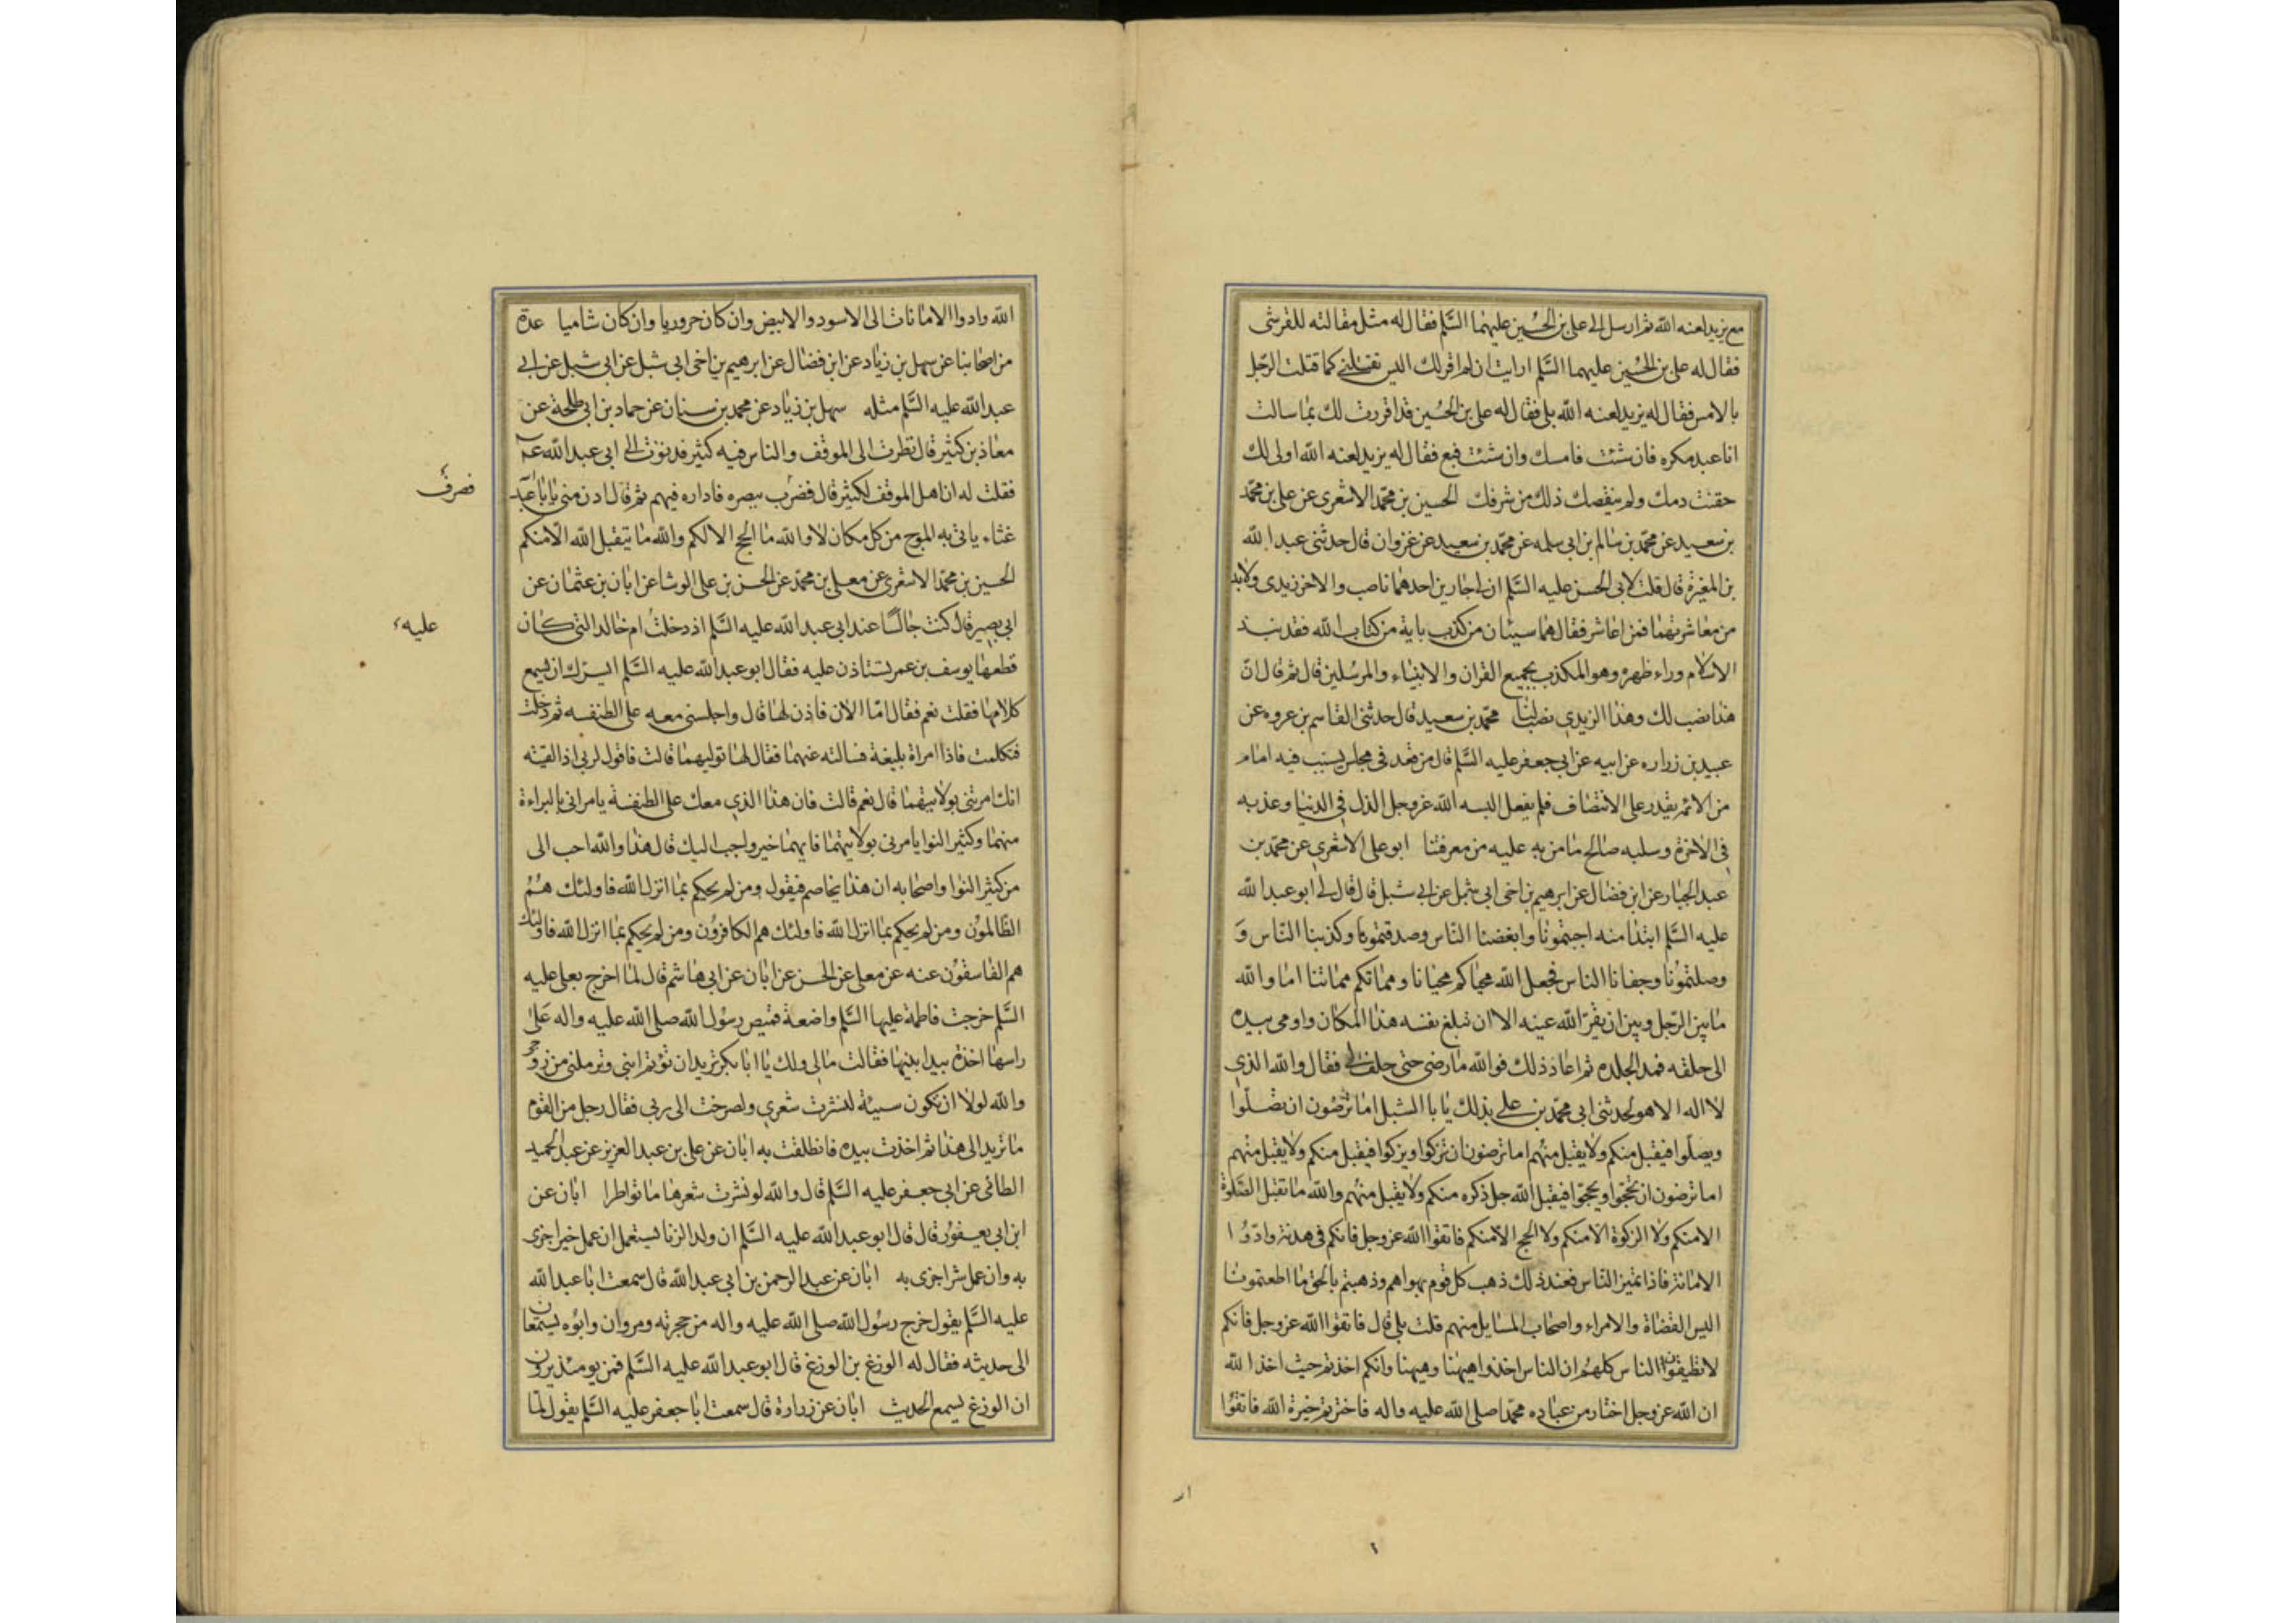 مع يزيد لعنه الله ثم ارسل الى على بن الحُسين عليهما السَّلم فقال له مثل مقالته للقرشى
فقال له على بن الحُسين عليهما السَّلم ارايت ان لم اقر لك اليس تقتلنى كما قتلت الرّجل
بالامس فقال له يزيد لعنه الله بلى فقال له على بن الحُسين قد اقررت لك بما سالت
انا عبد مكره فان شئت فامسك وان شئت فبع فقال له يزيد لعنه الله اولى لك
حقنت دمك ولم ينقصك ذلك من شرفك الحسين بن محمّد الاشعرى عن على بن محمّد
بن سعيد عن محمّد بن سالم بن ابى سلمه عن محمّد بن سعيد عن غزوان قال حدثنى عبد الله
بن المغيرة قال قلت لابى الحسن عليه السَّلم ان لى جارين احدهما ناصب والاخر زيدى ولابد
من معاشرتهما فمن اعاشر فقال هما سيان من كذب باية من كتاب الله فقد نبذ
الاسلام وراء ظهره وهو المكذب بجميع القران والانبياء والمرسُلين قال ثم قال ان
هذا نصب لك وهذا الزيدى نصب لنا محمّد بن سعيد قال حدثنى القاسم بن عروه عن
عبيد بن زراره عن ابيه عن ابى جعفر عليه السَّلم قال من قعد فى مجلس يسبّ فيه امام
من الائمة يقدر على الانتصاف فلم يفعل البسه الله عز وجل الذل فى الدنيا وعذبه
فى الاخرة وسلبه صالح ما من به عليه من معرفتنا ابو على الاشعرى عن محمّد بن
عبد الجبار عن ابن فضال عن ابرهيم بن اخى ابى شبل عن ابى شبل قال قال لى ابو عبد الله
عليه السَّلم ابتدا منه احببتمونا وابغضنا النّاس وصدقتمونا وكذبنا النّاس وَ
وصلتمونا وجفانا الناس فجعل الله محياكم محيانا ومماتكم مماتنا اما والله
ما بين الرّجل وبين ان يقرّ الله عينه الا ان تبلغ نفسه هذا المكان واومى بيده
الى حلقه فمد الجلده ثم اعاد ذلك فوالله ما رضى حتى حلف لى فقال والله الذى
لا اله الا هو لحدثنى ابى محمّد بن على بذلك يا با الشبل اما ترضون ان تصلّوا
ويصلّوا فيقبل منكم ولا يقبل منهُم اما ترضون ان تزكوا ويزكوا فيقبل منكم ولا يقبل منهم
اما ترضون ان تحجّوا ويحجّوا فيقبل الله جل ذكره منكم ولا يقبل منهُم والله ما تقبل الصَّلوة
الا منكم ولا الزكوة الا منكم ولا الحج الا منكم فاتقوا الله عز وجل فانكم فى هدنة وادّوُا
الامانة فاذا تميز النّاس فعند ذلك ذهب كل قوم بهواهم وذهبتم بالحق ما اطعتمونا
اليس القضاة والامراء واصحاب المسايل منهم قلت بلى قال فاتقوا الله عز وجل فانكم
لا تطيقون الناس كلهُم ان الناس اخذوا هيهنا وهيهنا وانكم اخذتم حيث اخذ الله
ان الله عز وجل اختار من عباده محمّدا صلى الله عليه واله فاخترتم خيرة الله فاتقوُا
الله وادوا الامانات الى الاسود والابيض وان كان حروريا وان كان شاميا عدة
من اصحابنا عن سهل بن زياد عن ابن فضال عن ابرهيم بن اخى ابى شبل عن ابى شبل عن ابى
عبد الله عليه السَّلم مثله سهل بن زياد عن محمد بن سنان عن حماد بن ابى طلحة عن
معاذ بن كثير قال نظرت الى الموقف والناس فيه كثير فدنوت الى ابى عبد الله عم
فقلت له ان اهل الموقف لكثير قال فضرب ببصره فاداره فيهم ثم قال ادن منى يا با عبد
فصرف
غثاء ياتى به الموج من كل مكان لا والله ما الحج الا لكم والله ما يتقبل الله الا منكم
الحسين بن محمّد الاشعرى عن معلى بن محمّد عن الحسن بن على الوشا عن ابان بن عثمان عن
ابى بصير قال كنت جالسًا عند ابى عبد الله عليه السَّلم اذ دخلت ام خالد التى كان
عليه
قطعها يوسف بن عمر تستاذن عليه فقال ابو عبد الله عليه السَّلم ايسرك ان تسمع
كلامها فقلت نعم فقال امّا الان فاذن لها قال واجلسنى معه على الطنفسه ثم دخلت
فتكلمت فاذا امراة بليغة فسالته عنهما فقال لها توليهما قالت فاقول لربى اذا لقيته
انك امرتنى بولايتهما قال نعم قالت فان هذا الذى معك على الطنفسة يامرنى بالبراءة
منهما وكثير النوا يامرنى بولايتهما فايهما خير واحب اليك قال هذا والله احب الى
من كثير النوا واصحابه ان هذا يخاصم فيقول ومن لم يحكم بما انزل الله فاولئك هُمُ
الظّالموُن ومن لم يحكم بما انزل الله فاولئك هم الكافرُون ومن لم يحكم بما انزل الله فاولئك
هم الفاسقوُن عنه عن معلى عن الحسن عن ابان عن ابى هاشم قال لما اخرج بعلى عليه
السَّلم خرجت فاطمة عليها السَّلم واضعة قميص رسُول الله صلى الله عليه واله عَلى
راسها اخذة بيد ابنيها فقالت مالى ولك يا ابا بكر تريد ان توتم ابنى وترملنى من زوجى
والله لولا ان تكون سيئة لنشرت شعرى ولصرخت الى ربى فقال رجل من القوم
ما تريد الى هذا ثم اخذت بيده فانطلقت به ابان عن على بن عبد العزيز عن عبد الحميد
الطائى عن ابى جعفر عليه السَّلم قال والله لو نشرت شعرها ماتوا طرا ابان عن
ابن ابى يعفوُر قال قال ابو عبد الله عليه السَّلم ان ولد الزنا يستعمل ان عمل خيرا جزى
به وان عمل شرا جزى به ابان عن عبد الرحمن بن ابى عبد الله قال سمعت ابا عبد الله
عليه السَّلم يقول خرج رسُول الله صلى الله عليه واله من حجرته ومروان وابوُه يستمعان
الى حديثه فقال له الوزغ بن الوزغ قال ابو عبد الله عليه السَّلم فمن يومئذ يرون
ان الوزغ يسمع الحديث ابان عن زرارة قال سمعت ابا جعفر عليه السَّلم يقول لمّا